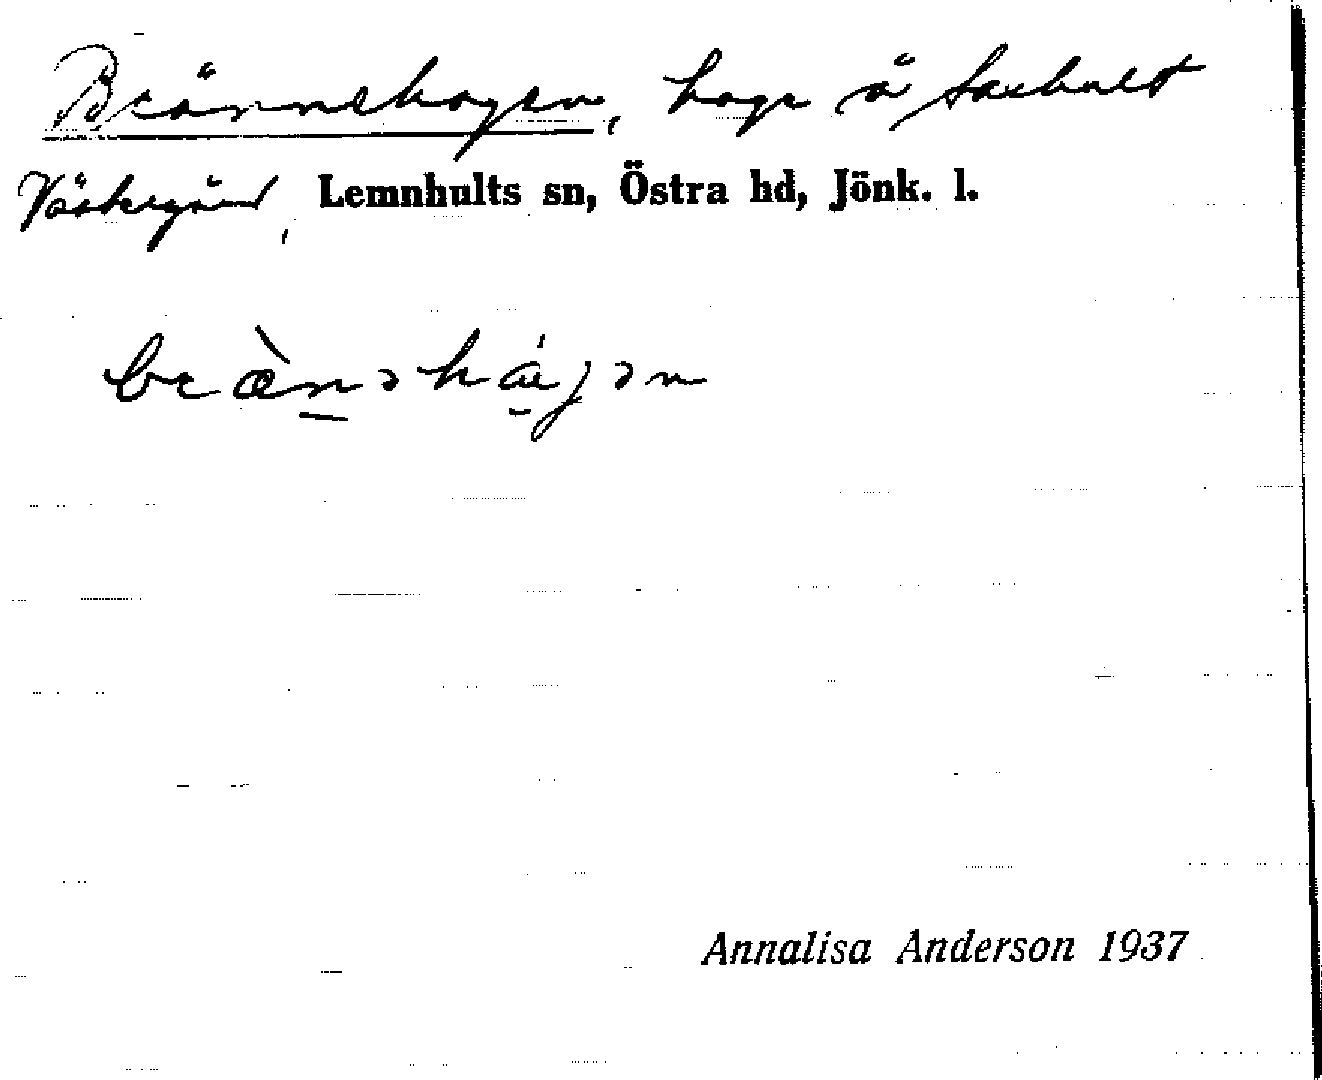 Brännehagen, hage å Saxhult
Västergård, Lemnhults sn, Östra hd, Jönk. l.
bræ̀nəhágən
Annalisa Anderson 1937